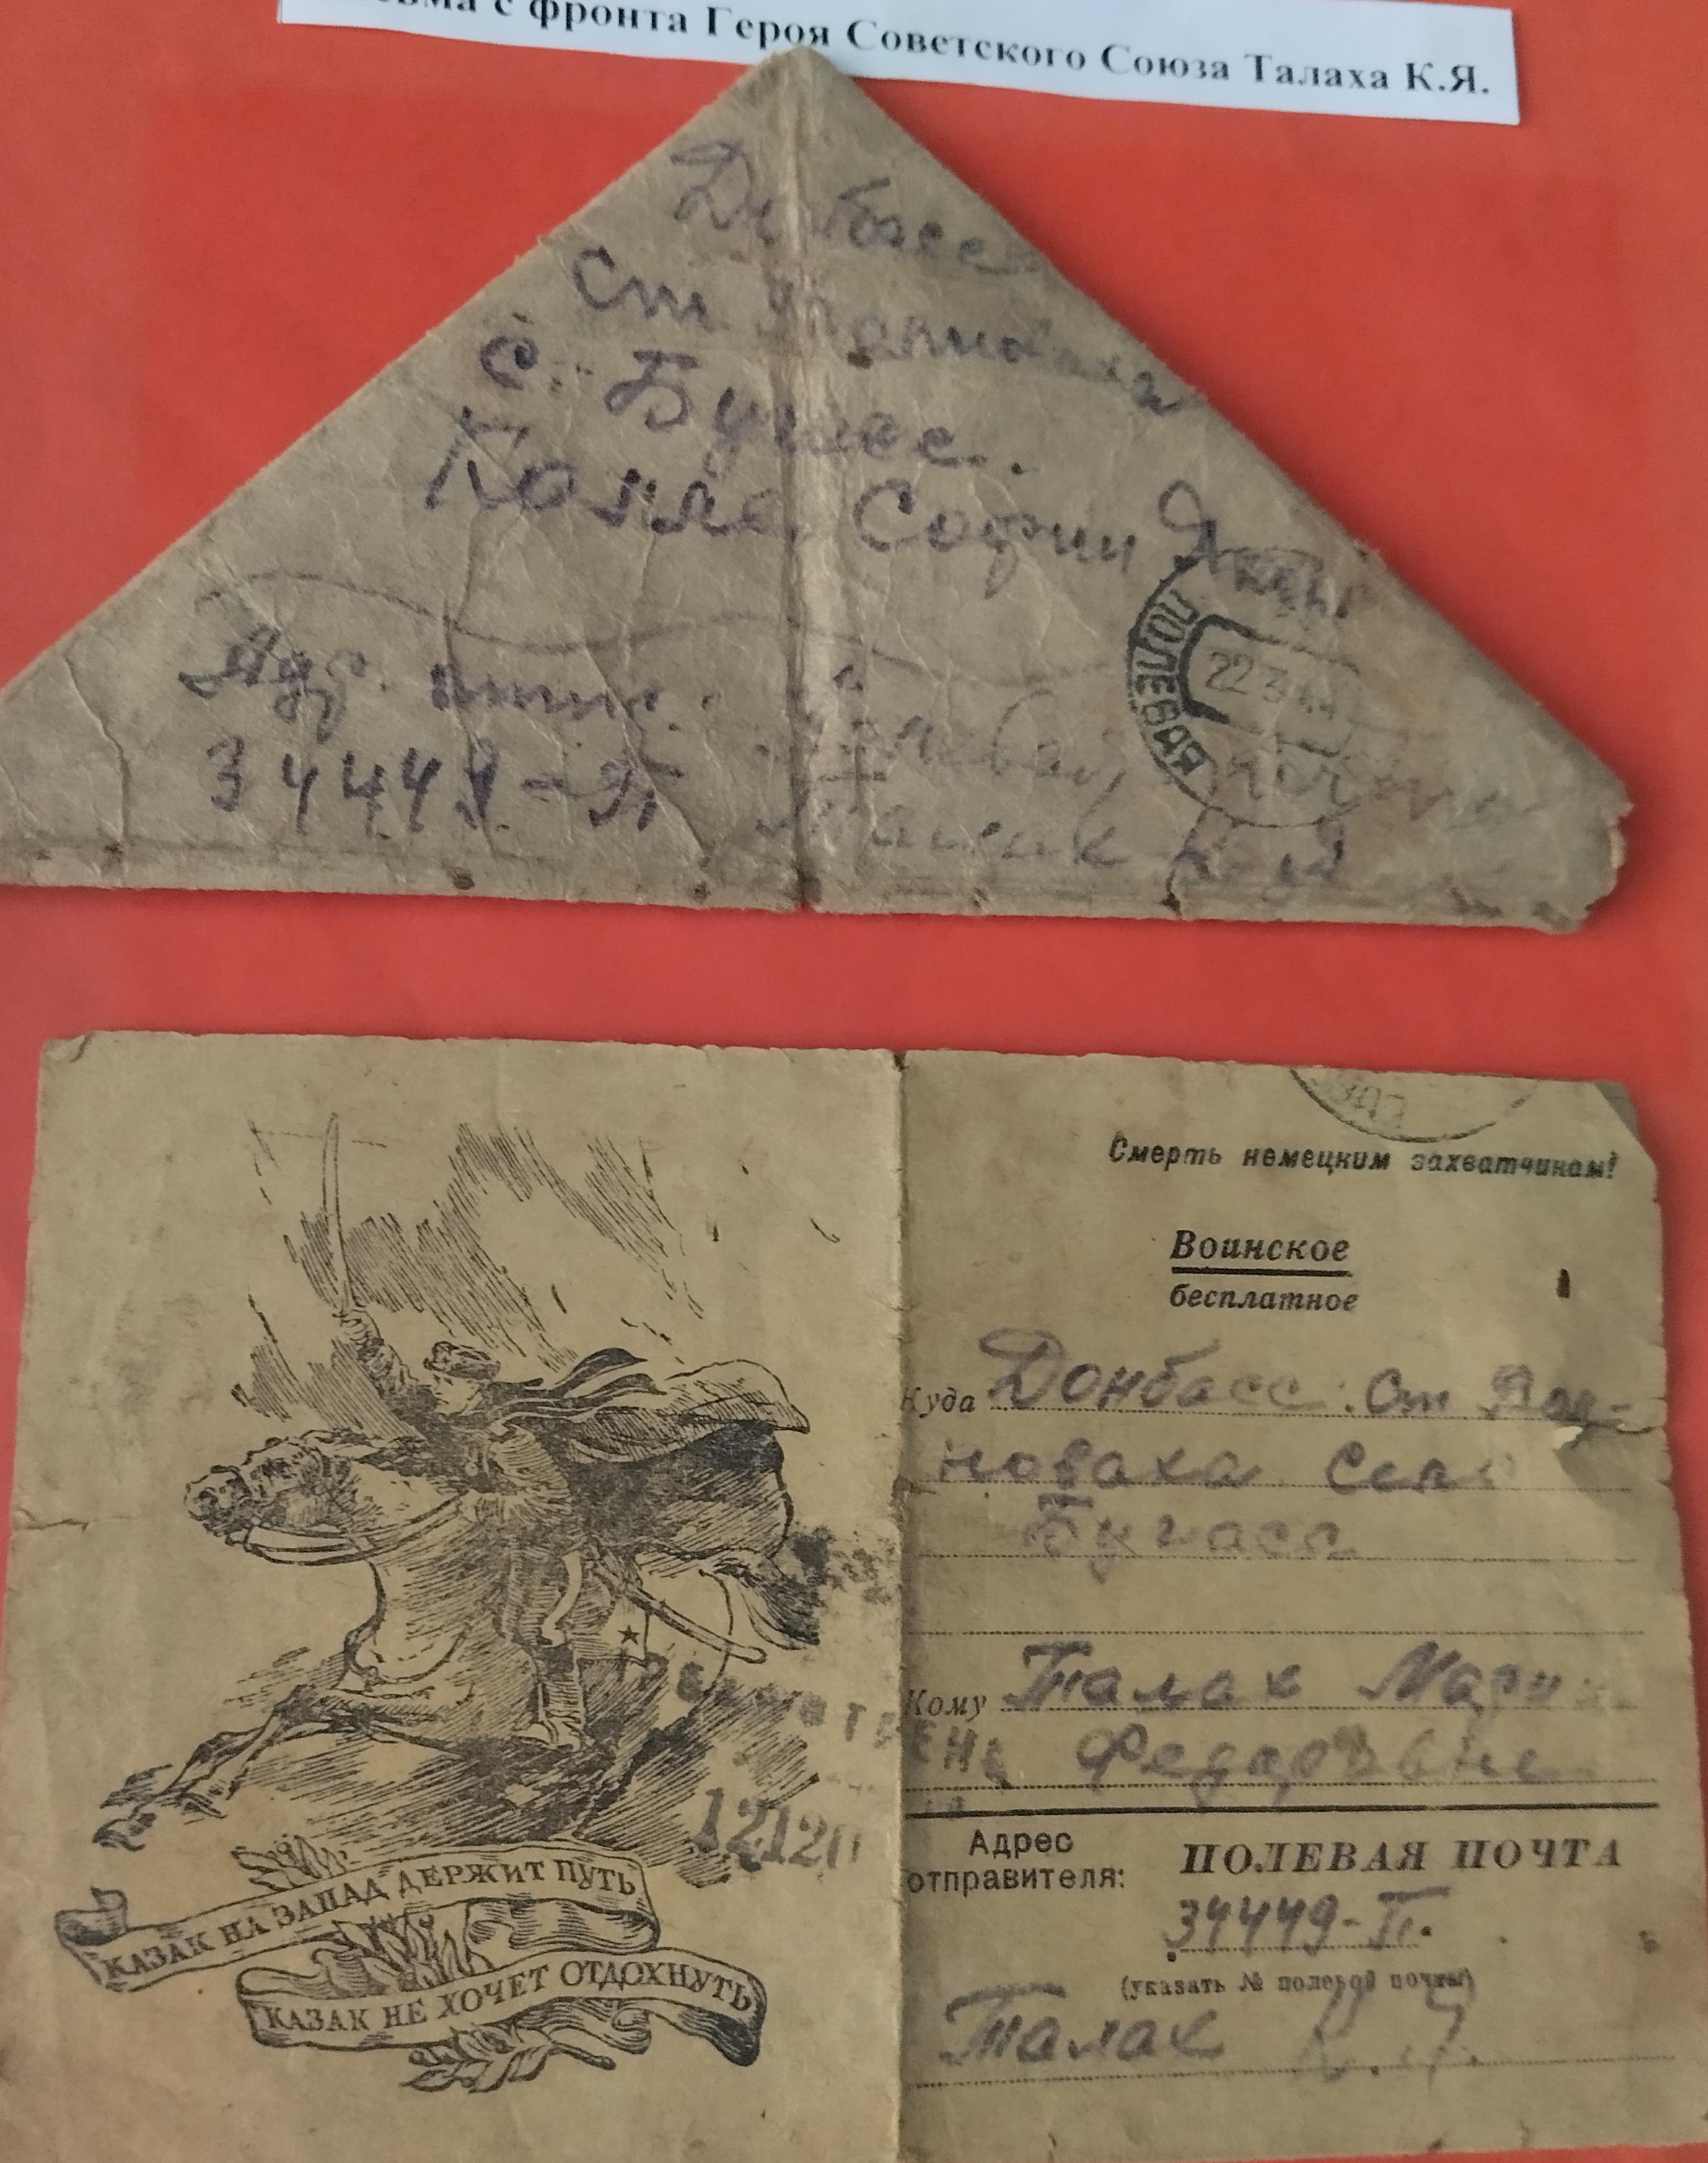 с фронта Героя Советского Союза Талаха К.Я.
Донбасс
Ст
с. Бугасс.
Софии
ПОЛЕВАЯ
22 3 44
Адр.
34449-П Талах К. Я
Смерть немецким захватчикам!
Воинское
бесплатное
Куда Донбасс. Ст Вол-
новаха Село
Бугасс
Кому Талах Марии
Федоровне
12120
Адрес
отправителя:
ПОЛЕВАЯ ПОЧТА
34449-П.
(указать № полевой почты)
Талах К. Я.
КАЗАК НА ЗАПАД ДЕРЖИТ ПУТЬ
КАЗАК НЕ ХОЧЕТ ОТДОХНУТЬ